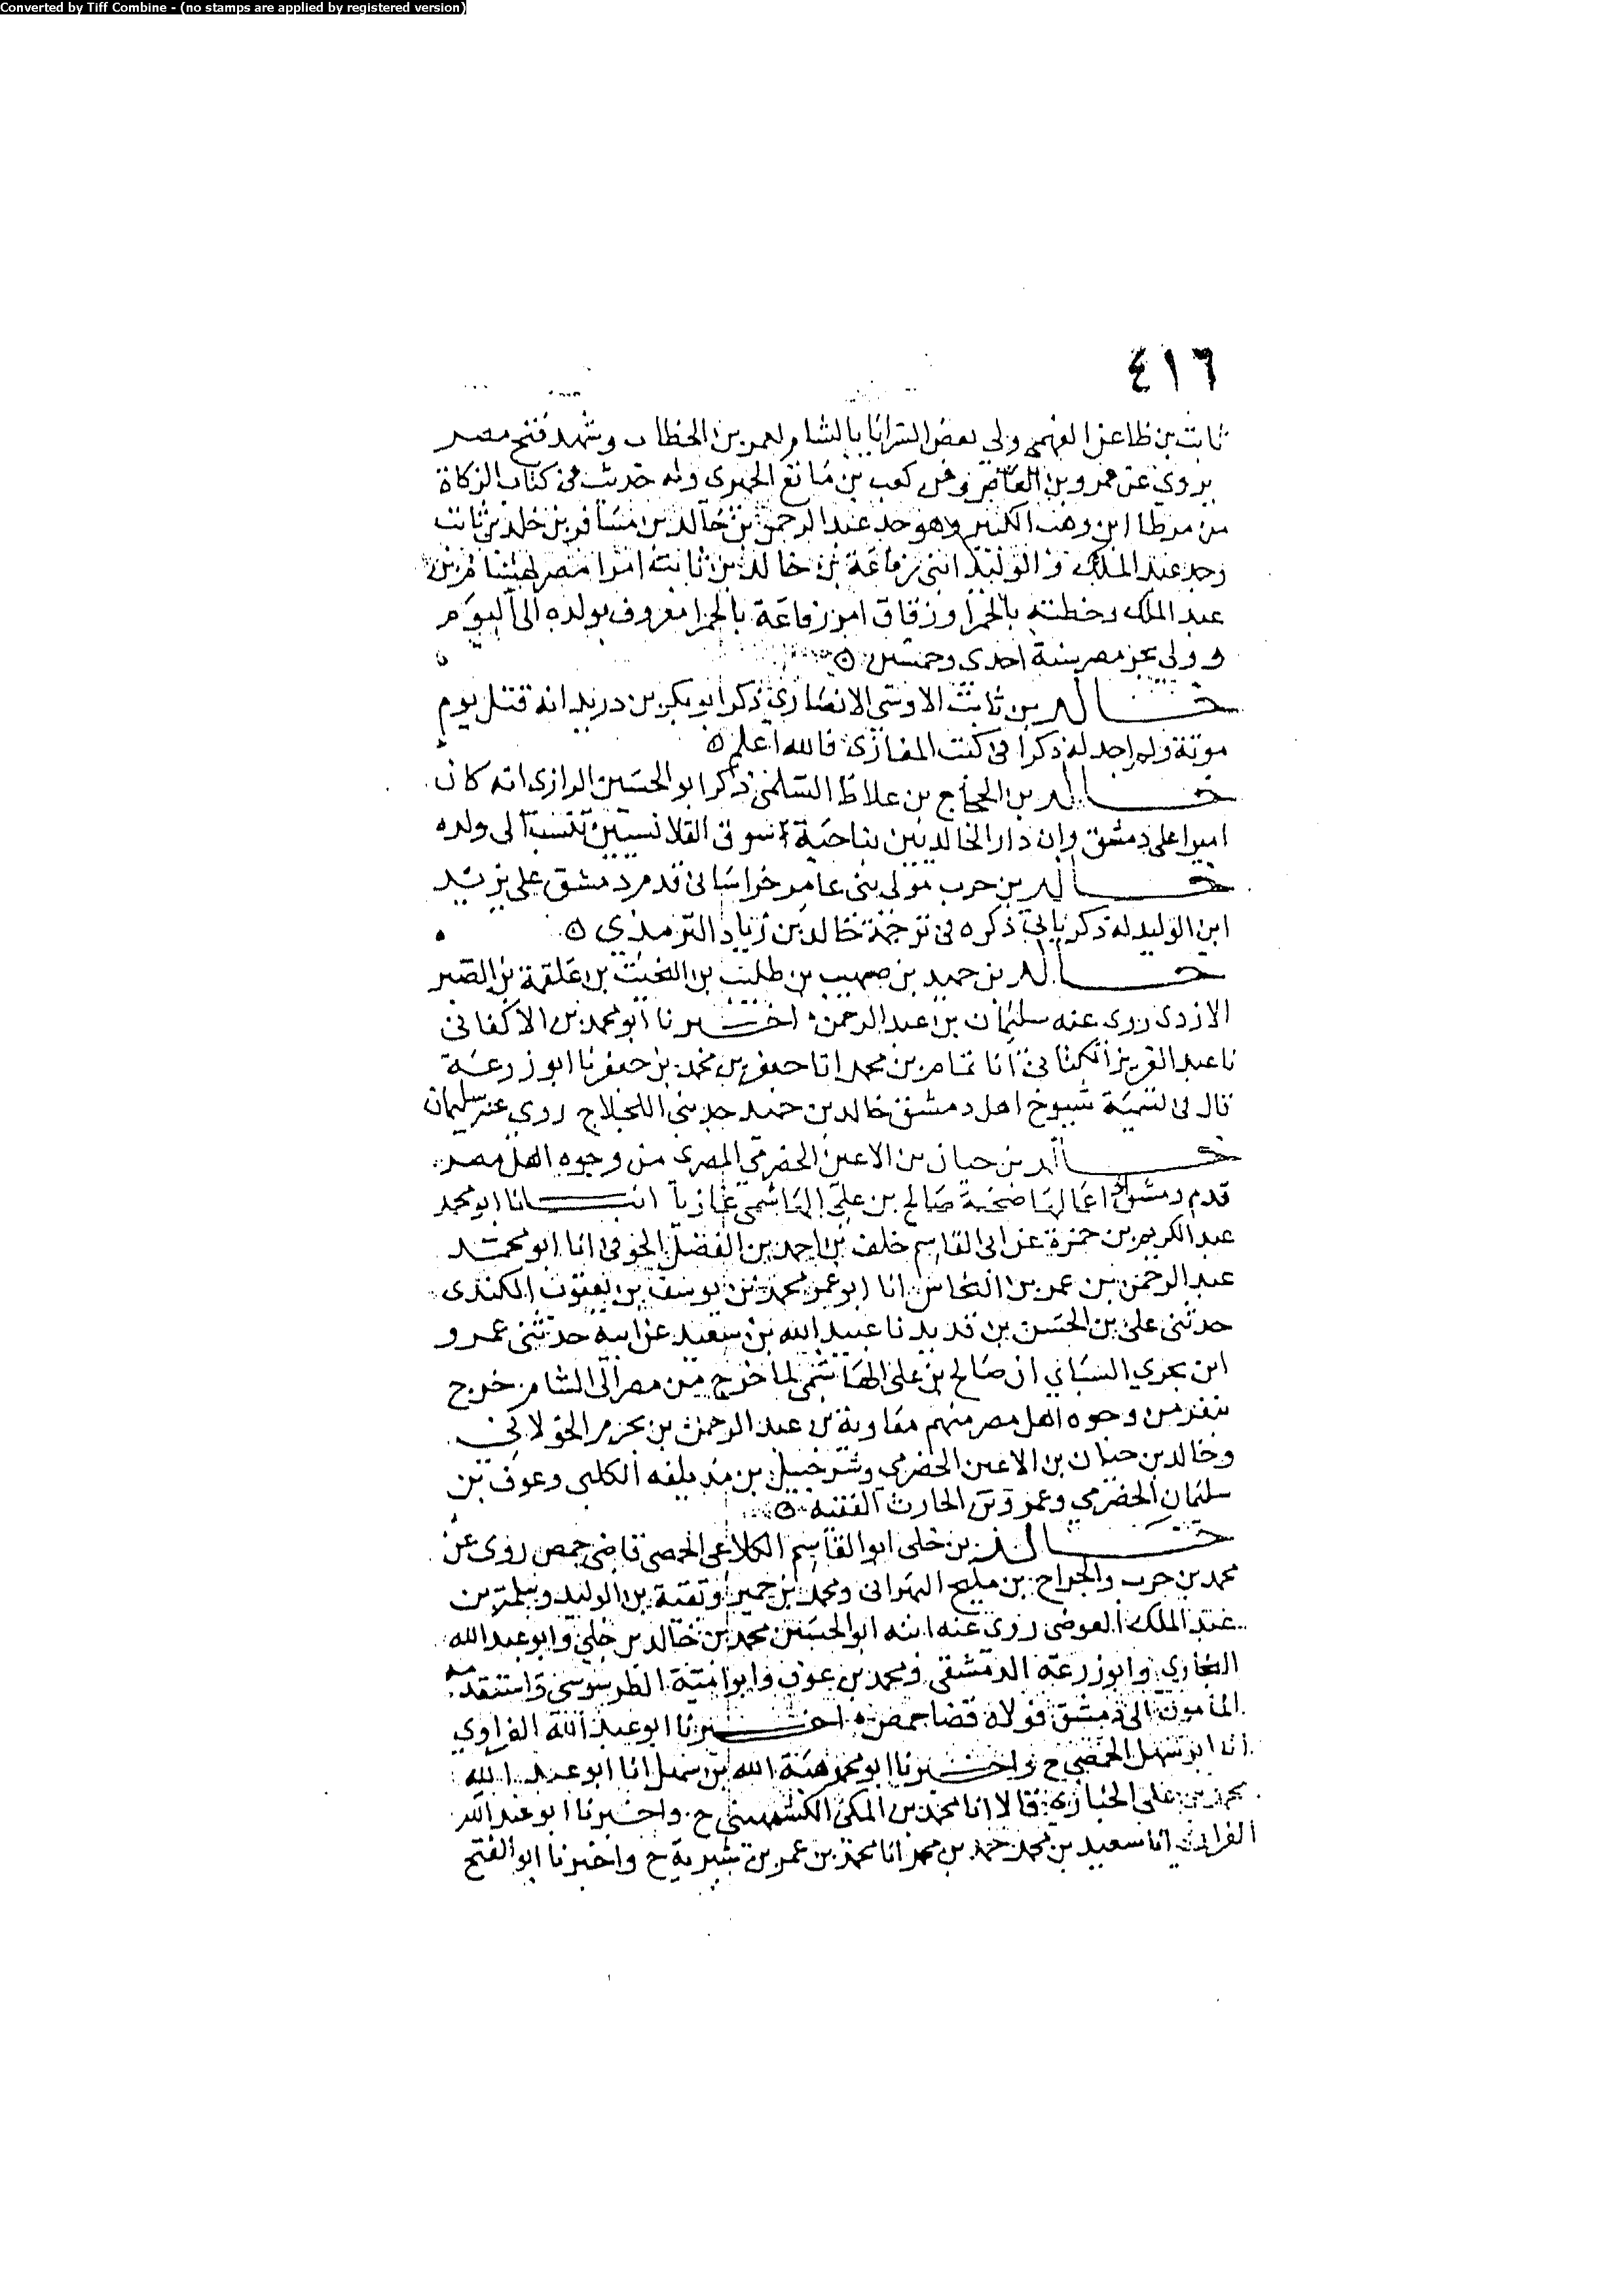 Converted by Tiff Combine - (no stamps are applied by registered version)
٤١٦
ثابت بن ظاعن الفهمي ولى بعض السرايا بالشام لعمر بن الخطاب وشهد فتح مصر
يروي عن عمرو بن العاص وعن كعب بن ماتع الحميري وله حديث في كتاب الزكاة
من موطا ابن وهب الكبير وهو جد عبد الرحمن بن خالد بن مسافر بن خلد بن ثابت
وجد عبد الملك والوليد ابني رفاعة بن خالد بن ثابت امرا مصر لهشام بن
عبد الملك وخطته بالحمرا وزقاق ابن رفاعة بالحمرا معروف بولده الى اليوم
وولي بحر مصر سنة احدى وخمسين ٥
خالد بن ثابت الاوسي الانصاري ذكر ابو بكر بن دريد انه قتل يوم
موتة ولم اجد له ذكرا في كتب المغازي فالله اعلم ٥
خالد بن الحجاج بن علاط السلمي ذكر ابو الحسين الرازي انه كان
اميرا على دمشق وان دار الخالديين بناحية سوق القلانسيين تنسب الى ولده
خالد بن حرب مولى بني عامر خراساني قدم دمشق على يزيد
ابن الوليد له ذكر ياتي ذكره في ترجمة خالد بن زياد الترمذي ٥
خالد بن حميد بن صهيب بن طليب بن النخيت بن علقمة بن الصبر
الازدي روى عنه سليمان بن عبد الرحمن اخبرنا ابو محمد بن الاكفاني
نا عبد العزيز الكتاني انا تمام بن محمد انا جعفر بن محمد بن جعفر نا ابو زرعة
قال في تسمية شيوخ اهل دمشق خالد بن حميد جد بني اللجلاج روى عنه سليمان
خالد بن حيان بن الاعين الحضرمي المصري من وجوه اهل مصر
قدم دمشق او اعمالها صحبة صالح بن علي الهاشمي غازيا انبانا ابو محمد
عبد الكريم بن حمزة عن ابي القاسم خلف بن احمد بن الفضل الحوفي انا ابو محمد
عبد الرحمن بن عمر بن النحاس انا ابو عمر محمد بن يوسف بن يعقوب الكندي
حدثني علي بن الحسن بن قديد نا عبيد الله بن سعيد عن ابيه حدثني عمرو
ابن بحري السباي ان صالح بن علي الهاشمي لما خرج من مصر الى الشام خرج
بنفر من وجوه اهل مصر منهم معاوية بن عبد الرحمن بن بحزم الخولاني
وخالد بن حيان بن الاعين الحضرمي وشرحبيل بن مذيلفه الكلبي وعوف بن
سليمان الحضرمي وعمرو بن الحارث الفقيه ٥
خالد بن خلى ابو القاسم الكلاعي الحمصي قاضي حمص روى عن
محمد بن حرب والجراح بن مليح البهراني ومحمد بن حمير وبقية بن الوليد وسلمة بن
عبد الملك العوصي روى عنه ابنه ابو الحسين محمد بن خالد بن خلي وابو عبد الله
البخاري وابو زرعة الدمشقي ومحمد بن عوف وابو امية الطرسوسي واستقدمه
المأمون الى دمشق فولاه قضا حمص ٥ اخبرنا ابو عبد الله الفراوي
انا ابو سهل الحفصي ح واخبرنا ابو محمد هبة الله بن سهل انا ابو عبد الله
محمد بن علي الخبازي قالا انا محمد بن المكي الكشميهني ح واخبرنا ابو عبد الله
الفراوي انا سعيد بن محمد بن محمد انا محمد بن عمر بن شبوية ح واخبرنا ابو الفتح